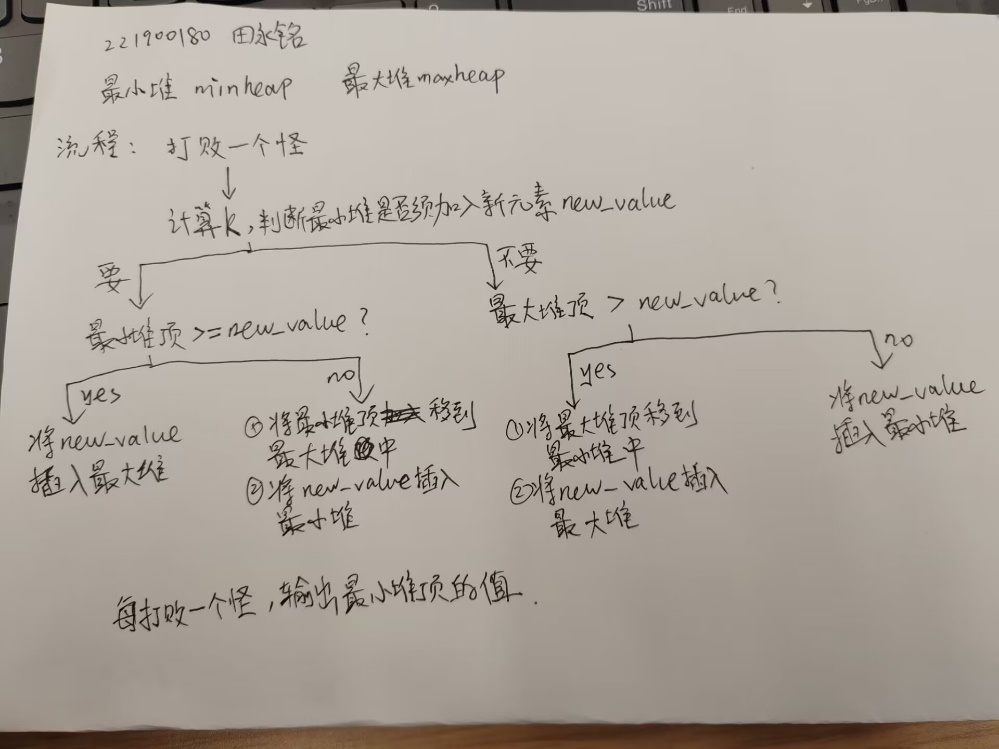 221900180 田永铭
最小堆 minheap 最大堆 maxheap
流程： 打败一个怪
计算k，判断最小堆是否须加入新元素 new_value
要
不要
最小堆顶 >= new_value ?
最大堆顶 > new_value ?
yes
no
yes
no
将new_value
插入最大堆
①将最小堆顶移到
最大堆中
②将new_value插入
最小堆
①将最大堆顶移到
最小堆中
②将new_value插入
最大堆
将new_value
插入最小堆
每打败一个怪，输出最小堆顶的值.
Shift
End